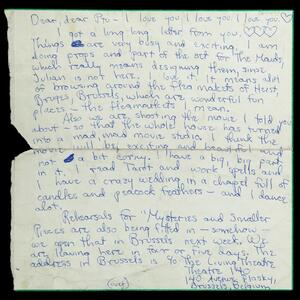 Dear, dear Pri - I love you. I love you. I love you.
I got a long long letter from you.
Things are very busy and exciting. I am
doing props and part of the set for The Maids,
which really means designing them, since
Julian is not here. I love it. It means alot
of browsing around the flea markets of Heist,
Bruges, Brussels, which are wonderful fun
places - the fleamarkets I mean.
Also we are shooting the movie I told you
about - so that the whole house has turned
into a mad, mad movie studio. I think the
movie will be exciting and beautiful and
not a bit corny. I have a big, big part
in it. I read Tarot and work spells and
I have a crazy wedding in a chapel full of
candles and peacock feathers - and I dance
alot.
Rehearsals for 'Mysteries and Smaller
Pieces are also being fitted in - somehow -
we open that in Brussels next week. We
are leaving here in four or five days. The
address in Brussels is % The Living Theatre
Theatre 140
140 Avenue Plasky,
Brussels, Belgium
(over)